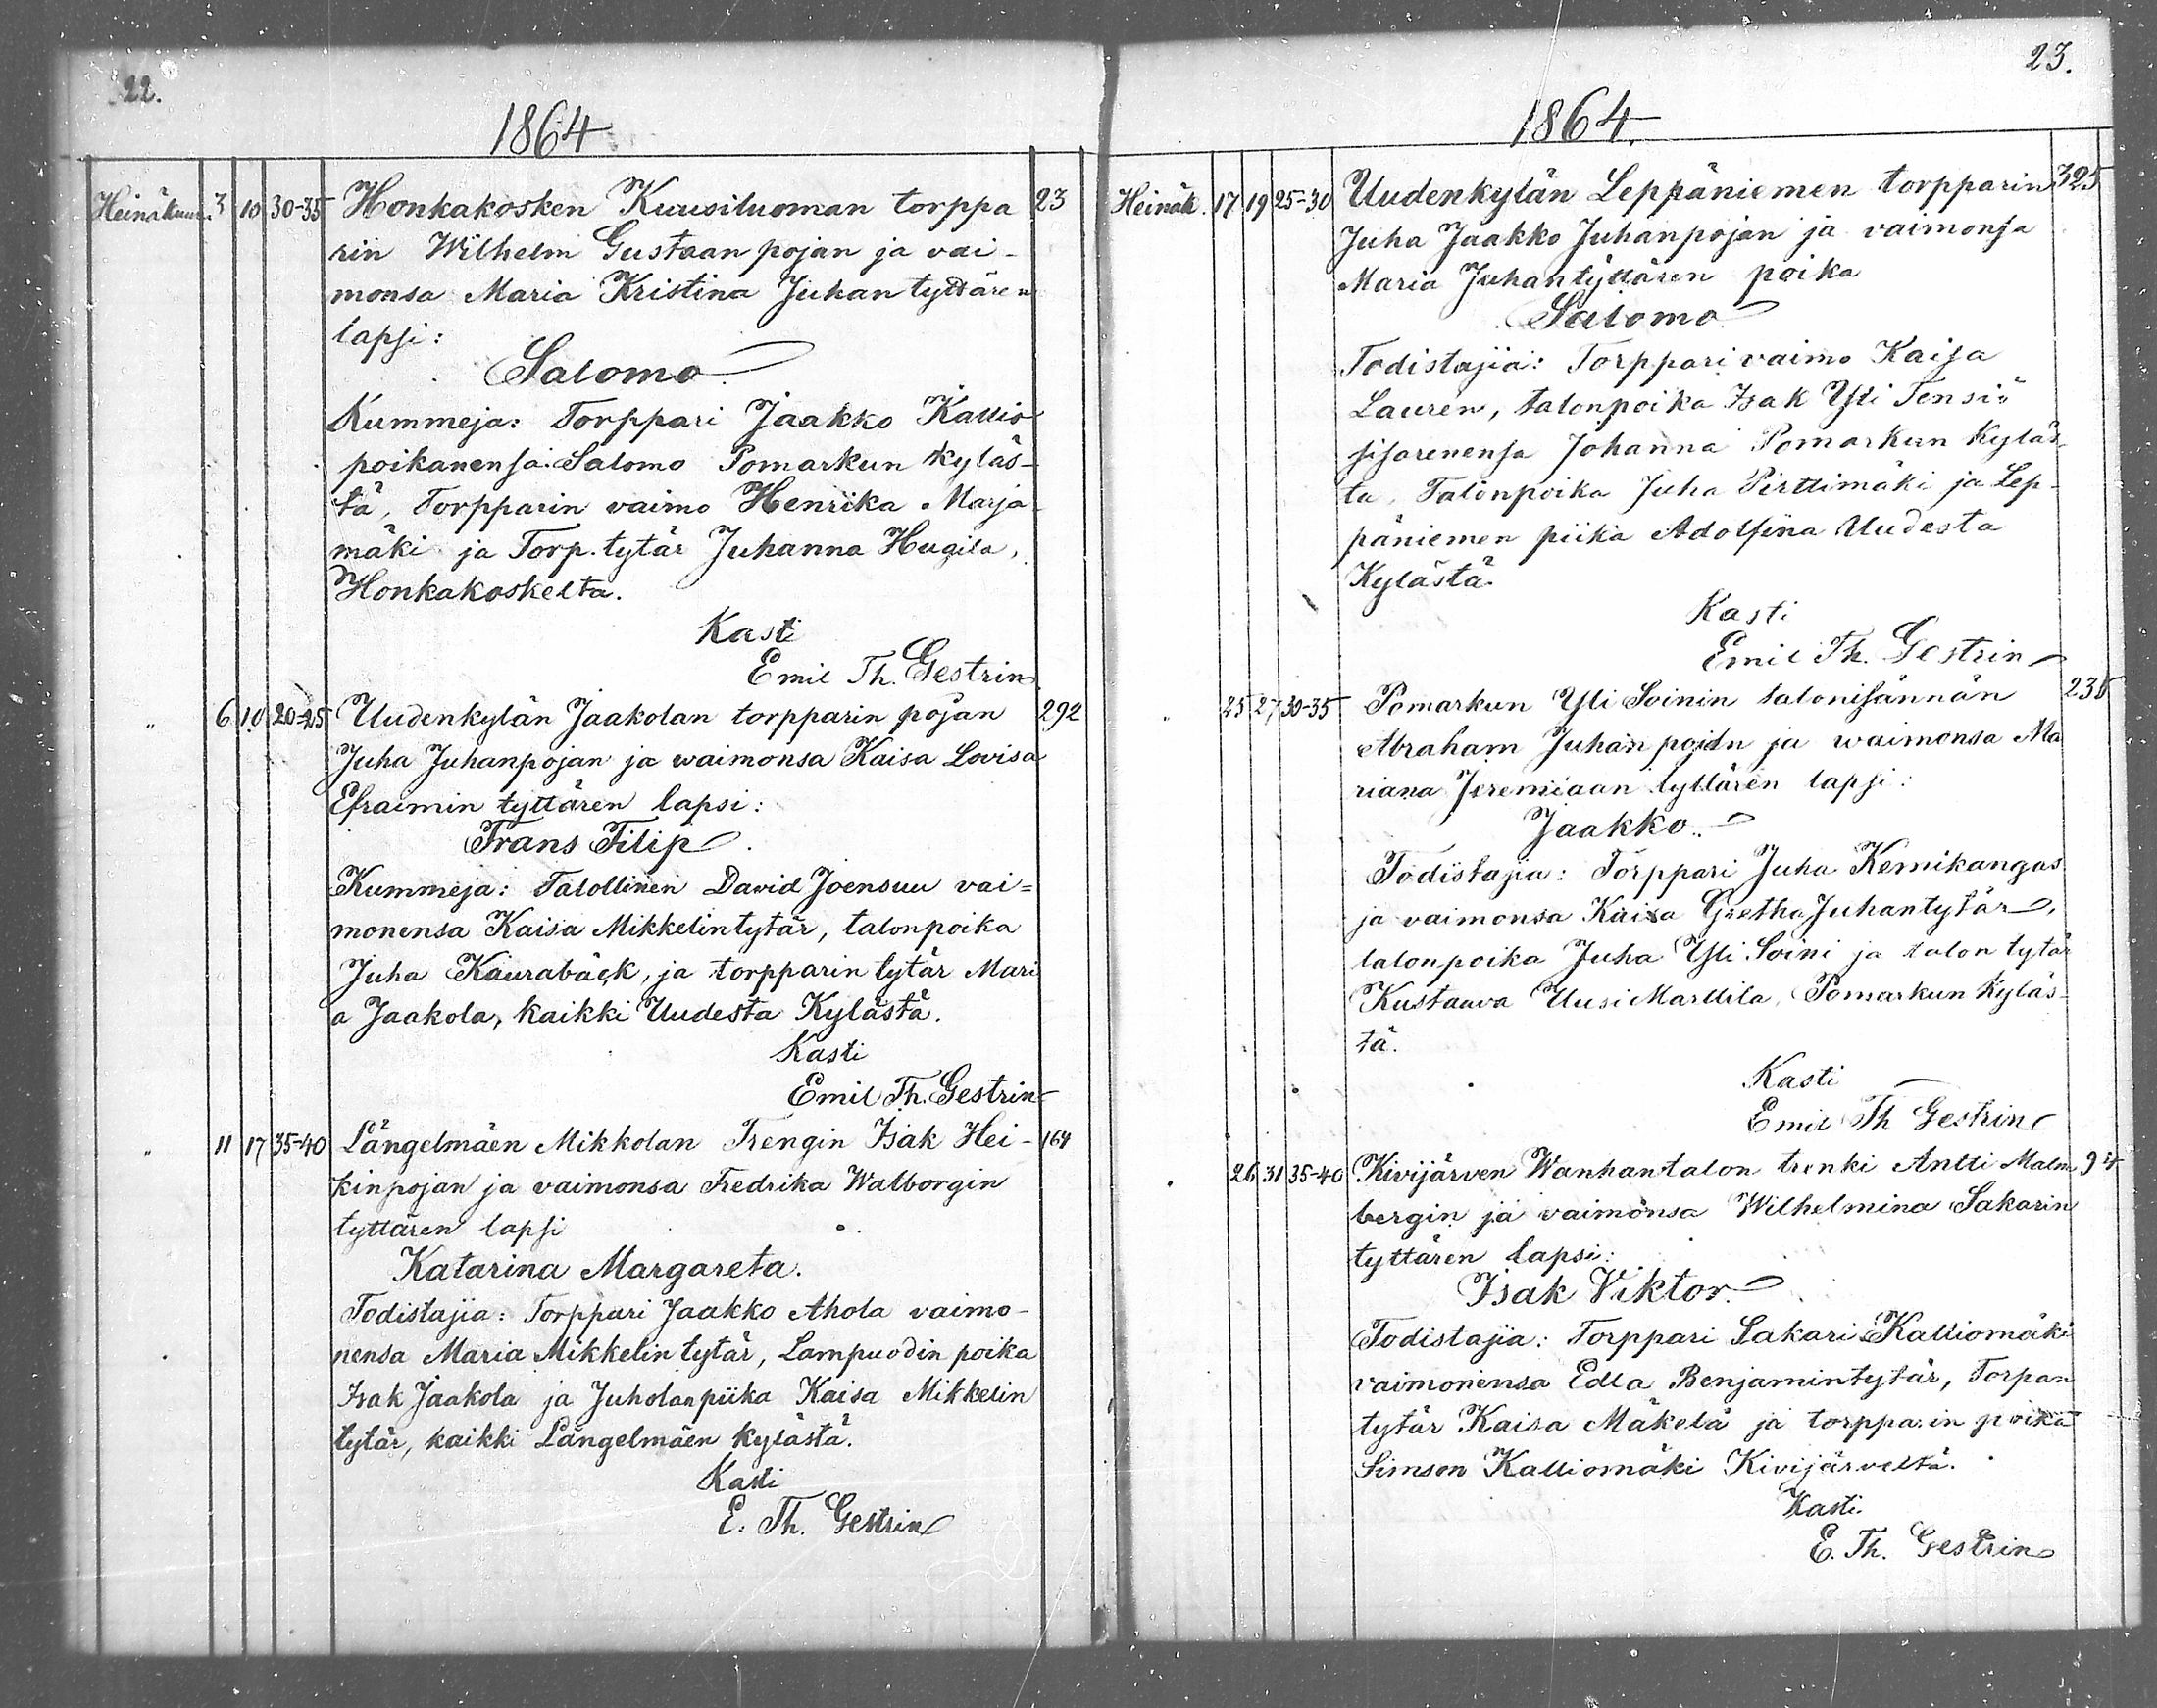 22.
1864
Heinäkuu. 3 10 30-35 Honkakosken Kuusiluoman torppa 23
rin Wilhelm Gustaan pojan ja vai-
monsa Maria Kristina Juhan tyttären
lapsi:
Salomo.
Kummeja: Torppari Jaakko Kallio
poikanensa Salomo Pomarkun kyläs-
tä, Torpparin vaimo Henrika Marja-
mäki ja Torp. tytär Juhanna Hugila,
Honkakoskelta.
Kasti
Emil Th. Gestrin
" 6 10 20-25 Uudenkylän Jaakolan torpparin pojan 292
Juha Juhanpojan ja waimonsa Kaisa Lovisa
Efraimin tyttären lapsi:
Frans Filip.
Kummeja: Talollinen David Joensuu vai=
monensa Kaisa Mikkelintytär, talonpoika
Juha Kaurabäck, ja torpparin tytär Mari
a Jaakola, kaikki Uudesta Kylästä.
Kasti
Emil Th. Gestrin
" 11 17 35-40 Längelmäen Mikkolan Trengin Isak Hei- 164
kinpojan ja vaimonsa Fredrika Walborgin
tyttären lapsi
Katarina Margareta.
Todistajia: Torppari Jaakko Ahola vaimo-
nensa Maria Mikkelin tytär, Lampuodin poika
Isak Jaakola ja Juholan piika Kaisa Mikkelin
tytär, kaikki Längelmäen kylästä.
Kasti
E. Th. Gestrin
23.
1864.
Heinäk. 17 19 25-30 Uudenkylän Leppäniemen torpparin 325
Juha Jaakko Juhanpojan ja vaimonsa
Maria Juhantyttären poika
Salomo
Todistajia: Torpparivaimo Kaisa
Lauren, talonpoika Isak Yli Tensiö
sisarenensa Johanna Pomarkun kyläs
ta, Talonpoika Juha Pirttimäki ja Lep-
päniemen piika Adolfina Uudesta
Kylästä.
Kasti
Emil Th. Gestrin
" 25 27 30-35 Pomarkun Yli Soinin talonisännän 235
Abraham Juhan pojan ja waimonsa Ma
riana Jeremiaan tyttären lapsi:
Jaakko.
Todistajia: Torppari Juha Kemikangas
ja vaimonsa Kaisa Gretha Juhantytär,
talonpoika Juha Yli Soini ja talon tytär
Kustaava Uusi Marttila, Pomarkun kyläs-
tä.
Kasti
Emil Th Gestrin
26 31 35-40 Kivijärven Wanhantalon trenki Antti Malm 94
bergin ja vaimonsa Wilhelmina Sakarin
tyttären lapsi:
Isak Viktor.
Todistajia: Torppari Sakari Kalliomäki
vaimonensa Edla Benjamintytär, Torpan
tytär Kaisa Mäkelä ja torpparin poika
Simson Kalliomäki Kivijärveltä.
Kasti.
E. Th. Gestrin